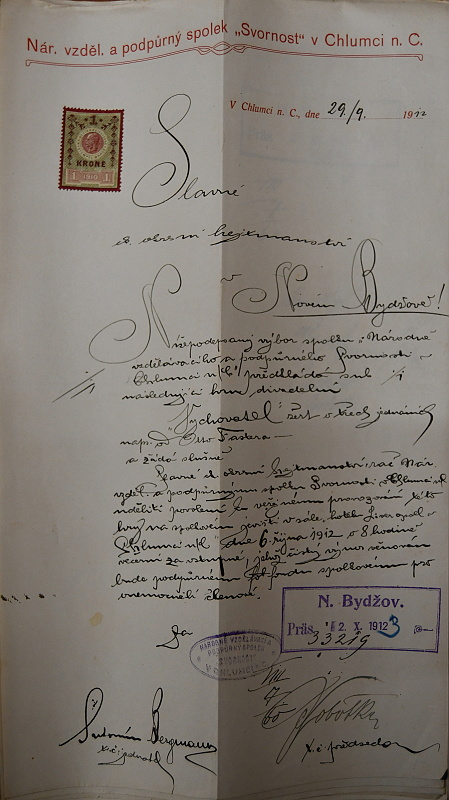 Nár. vzděl. a podpůrný spolek „Svornost" v Chlumci n. C.
V Chlumci n. C., dne 29./9. 1912
1
KRONE
1 1910 1
Slavné
c.k. okresní hejtmanství
v
Novém Bydžově!
Nížepodepsaný výbor spolku „Národně
vzdělávacího a podpůrného Svornosti v
Chlumci n/C" předkládá sub %
následující hru divadelní
„Vychovatel" žert o třech jednáních
naps. od Otto Fastera —
a žádá slušně
Slavné c.k. okresní hejtmanství, rač Nár.
vzděl. a podpůrnému spolku Svornosti v Chlumci n/C
uděliti povolení ku veřejnému provozování této
hry na spolkovém jevišti v sále hotelu
Chlumci n/C dne 6. října 1912 o 8 hodině
večerní za vstupné, jehož čistý výnos věnován
bude podpůrnému fondu spolkovému pro
onemocnělé členové.
Za
NÁRODNĚ VZDĚLÁVACÍ A
PODPŮRNÝ SPOLEK
„SVORNOST"
V CHLUMCI N. C.
N. Bydžov.
Präs. 2. X. 1912 3
33219
Antonín Bergmann
t.č. jednatel
Sobotka
t.č. předseda